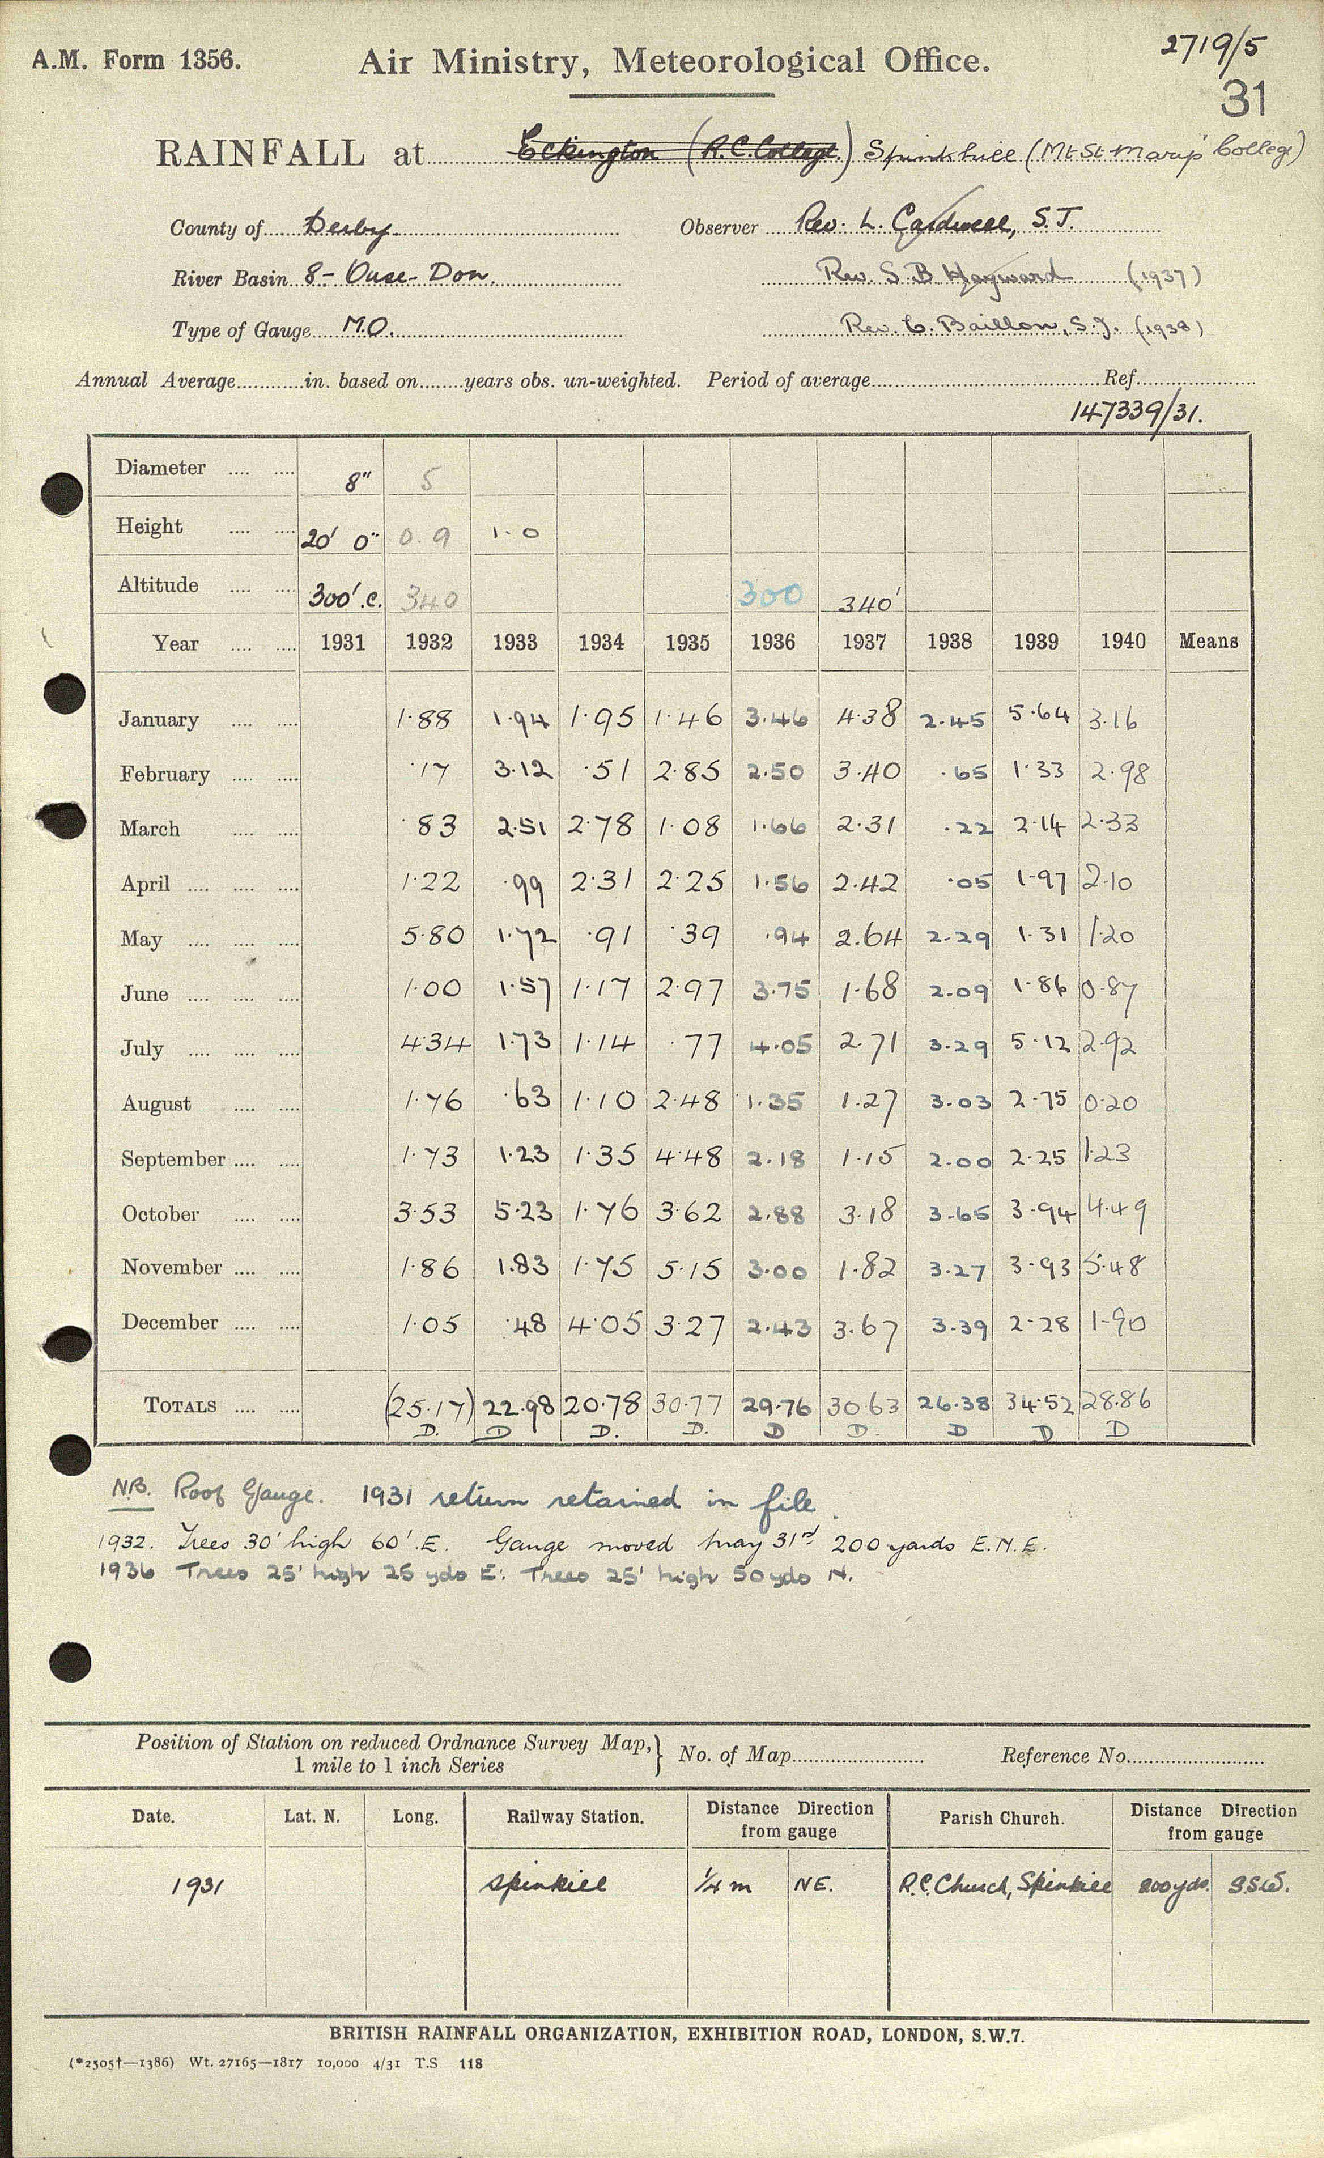 A.M. Form 1356.
Air Ministry, Meteorological Office.
2719/5
31
RAINFALL at Eckington (R.C. College) Spinkhill (Mt St Mary's College)
County of Derby. Observer Rev. L. Cardwell, S.J.
River Basin 8- Ouse-Don. Rev. S. B Hayward (1937)
Type of Gauge M.O. Rev. C. Baillon, S.J. (1938)
Annual Average in. based on years obs. un-weighted. Period of average Ref.
147339/31.
Diameter 8" 5
Height 20' 0" 0.9 1.0
Altitude 300'.c. 340 300 340'
Year 1931 1932 1933 1934 1935 1936 1937 1938 1939 1940 Means
January 1.88 1.94 1.95 1.46 3.46 4.38 2.45 5.64 3.16
February .17 3.12 .51 2.85 2.50 3.40 .65 1.33 2.98
March .83 2.51 2.78 1.08 1.66 2.31 .22 2.14 2.33
April 1.22 .99 2.31 2.25 1.56 2.42 .05 1.97 2.10
May 5.80 1.72 .91 .39 .94 2.64 2.29 1.31 1.20
June 1.00 1.57 1.17 2.97 3.75 1.68 2.09 1.86 0.87
July 4.34 1.73 1.14 .77 4.05 2.71 3.29 5.12 2.92
August 1.76 .63 1.10 2.48 1.35 1.27 3.03 2.75 0.20
September 1.73 1.23 1.35 4.48 2.18 1.15 2.00 2.25 1.23
October 3.53 5.23 1.76 3.62 2.88 3.18 3.65 3.94 4.49
November 1.86 1.83 1.75 5.15 3.00 1.82 3.27 3.93 5.48
December 1.05 .48 4.05 3.27 2.43 3.67 3.39 2.28 1.90
TOTALS (25.17) 22.98 20.78 30.77 29.76 30.63 26.38 34.52 28.86
D. D D. D. D D. D D D
N.B. Roof Gauge. 1931 return retained in file.
1932. Trees 30' high 60'.E. Gauge moved May 31st 200 yards E.N.E.
1936 Trees 25' high 25 yds E. Trees 25' high 50 yds N.
Position of Station on reduced Ordnance Survey Map, 1 mile to 1 inch Series } No. of Map Reference No.
Date. Lat. N. Long. Railway Station. Distance Direction from gauge Parish Church. Distance Direction from gauge
1931 Spinkill 1/4 m NE. R.C. Church, Spinkill 200 yds. S.S.W.
BRITISH RAINFALL ORGANIZATION, EXHIBITION ROAD, LONDON, S.W.7.
(*2505†—1386) Wt. 27165—1817 10,000 4/31 T.S 118